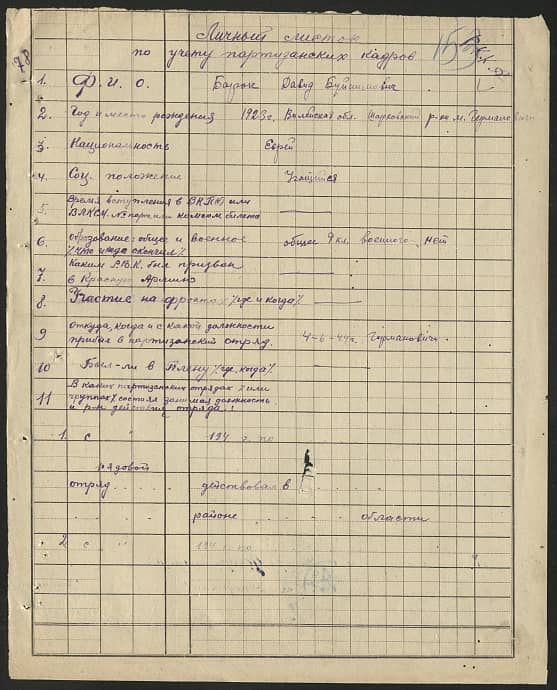 Личный листок
по учету партизанских кадров
78
1. Ф. И. О. Давид
2. Год и место рождения 1923 г. обл. р-на м. Германовичи
3. Национальность Еврей
4. Соц. положение Учащийся
5. Время вступления в ВКП(б) или
ВЛКСМ № парт. или комсом. билета
6. Образование: общее и военное общее 9 кл. военного - нет
/что и когда окончил/
7. Каким Р.В.К. был призван
в Красную Армию
8. Участие на фронтах /где и когда/
9 Откуда, когда и с какой должности
прибыл в партизанский отряд. Германовичи
10 Был-ли в плену /где, когда/
11 В каких партизанских отрядах /или
группах/ состоял занимая должность
и р-н действие отряда:
1. с " 194 г. по
рядовой
отряд действовал в
районе области
2 с " 194 по